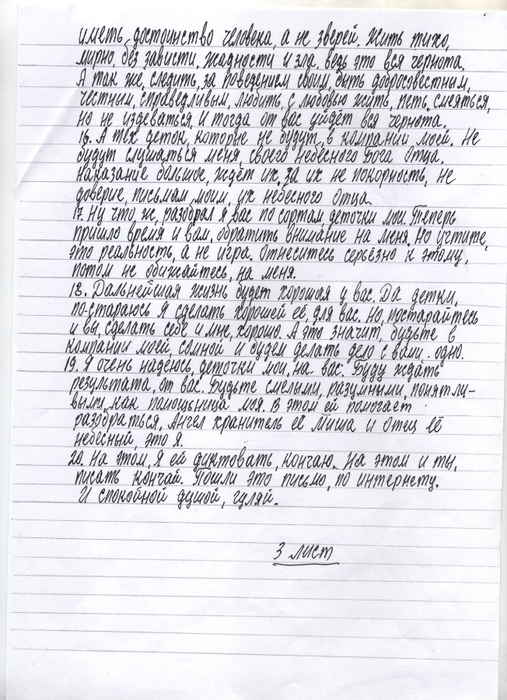 иметь, достоинство человека, а не зверей. Жить тихо,
мирно, без зависти, жадности и зла. ведь это вся чернота.
А так же, следить, за поведением своим, быть добросовестным,
честным, справедливым, любить, с любовью жить, петь, смеяться,
но не издеваться, и тогда от вас уйдёт вся чернота.
16. А тех деток, которые не будут, в компании моей. Не
будут слушаться меня, своего Небесного Бога Отца.
Наказание большое, ждёт их, за их не покорность, не
доверие, письмам, моим, их небесного Отца.
17. Ну что ж, разобрал я вас по сортам, деточки мои. Теперь
пришло время и вам, обратить внимание на меня, но учтите,
это реальность, а не игра. Отнеситесь серьёзно к этому,
потом не обижайтесь, на меня.
18. Дальнейшая жизнь будет хорошая у вас. Да детки,
по-стараюсь я сделать хорошей её, для вас. но, постарайтесь
и вы, сделать себе и мне, хорошо. А это значит, будьте в
компании моей, со мной и будем делать дело с вами. одно.
19. Я очень надеюсь, деточки мои, на вас. Буду ждать
результата, от вас. Будьте смелыми, разумными, понятли-
выми, как помощница моя. В этом ей помогает
разобраться, Ангел хранитель её Миша и Отец её
небесный, это я.
20. На этом, я ей диктовать, кончаю. На этом и ты,
писать кончай. Пошли это письмо, по интернету.
И спокойной душой, гуляй.
3 лист